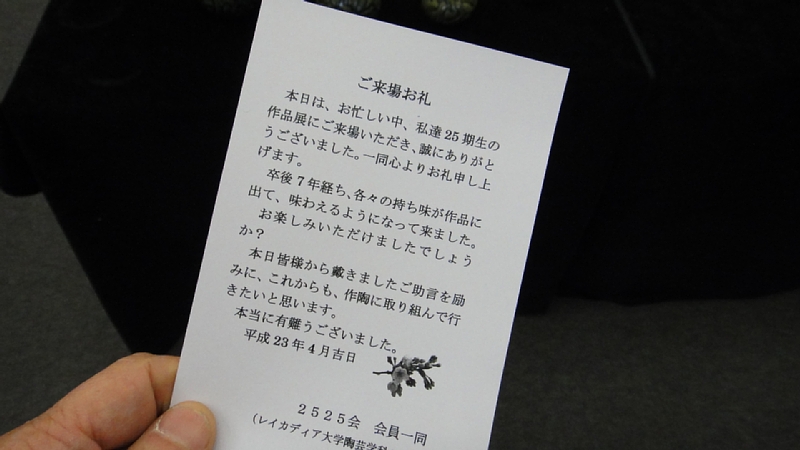 ご来場お礼
本日は、お忙しい中、私達25期生の
作品展にご来場いただき、誠にありがと
うございました。一同心よりお礼申し上
げます。
卒後7年経ち、各々の持ち味が作品に
出て、味わえるようになって来ました。
お楽しみいただけましたでしょう
か？
本日皆様から戴きましたご助言を励
みに、これからも、作陶に取り組んで行
きたいと思います。
本当に有難うございました。
平成23年4月吉日
２５２５会　会員一同
（レイカディア大学陶芸学科